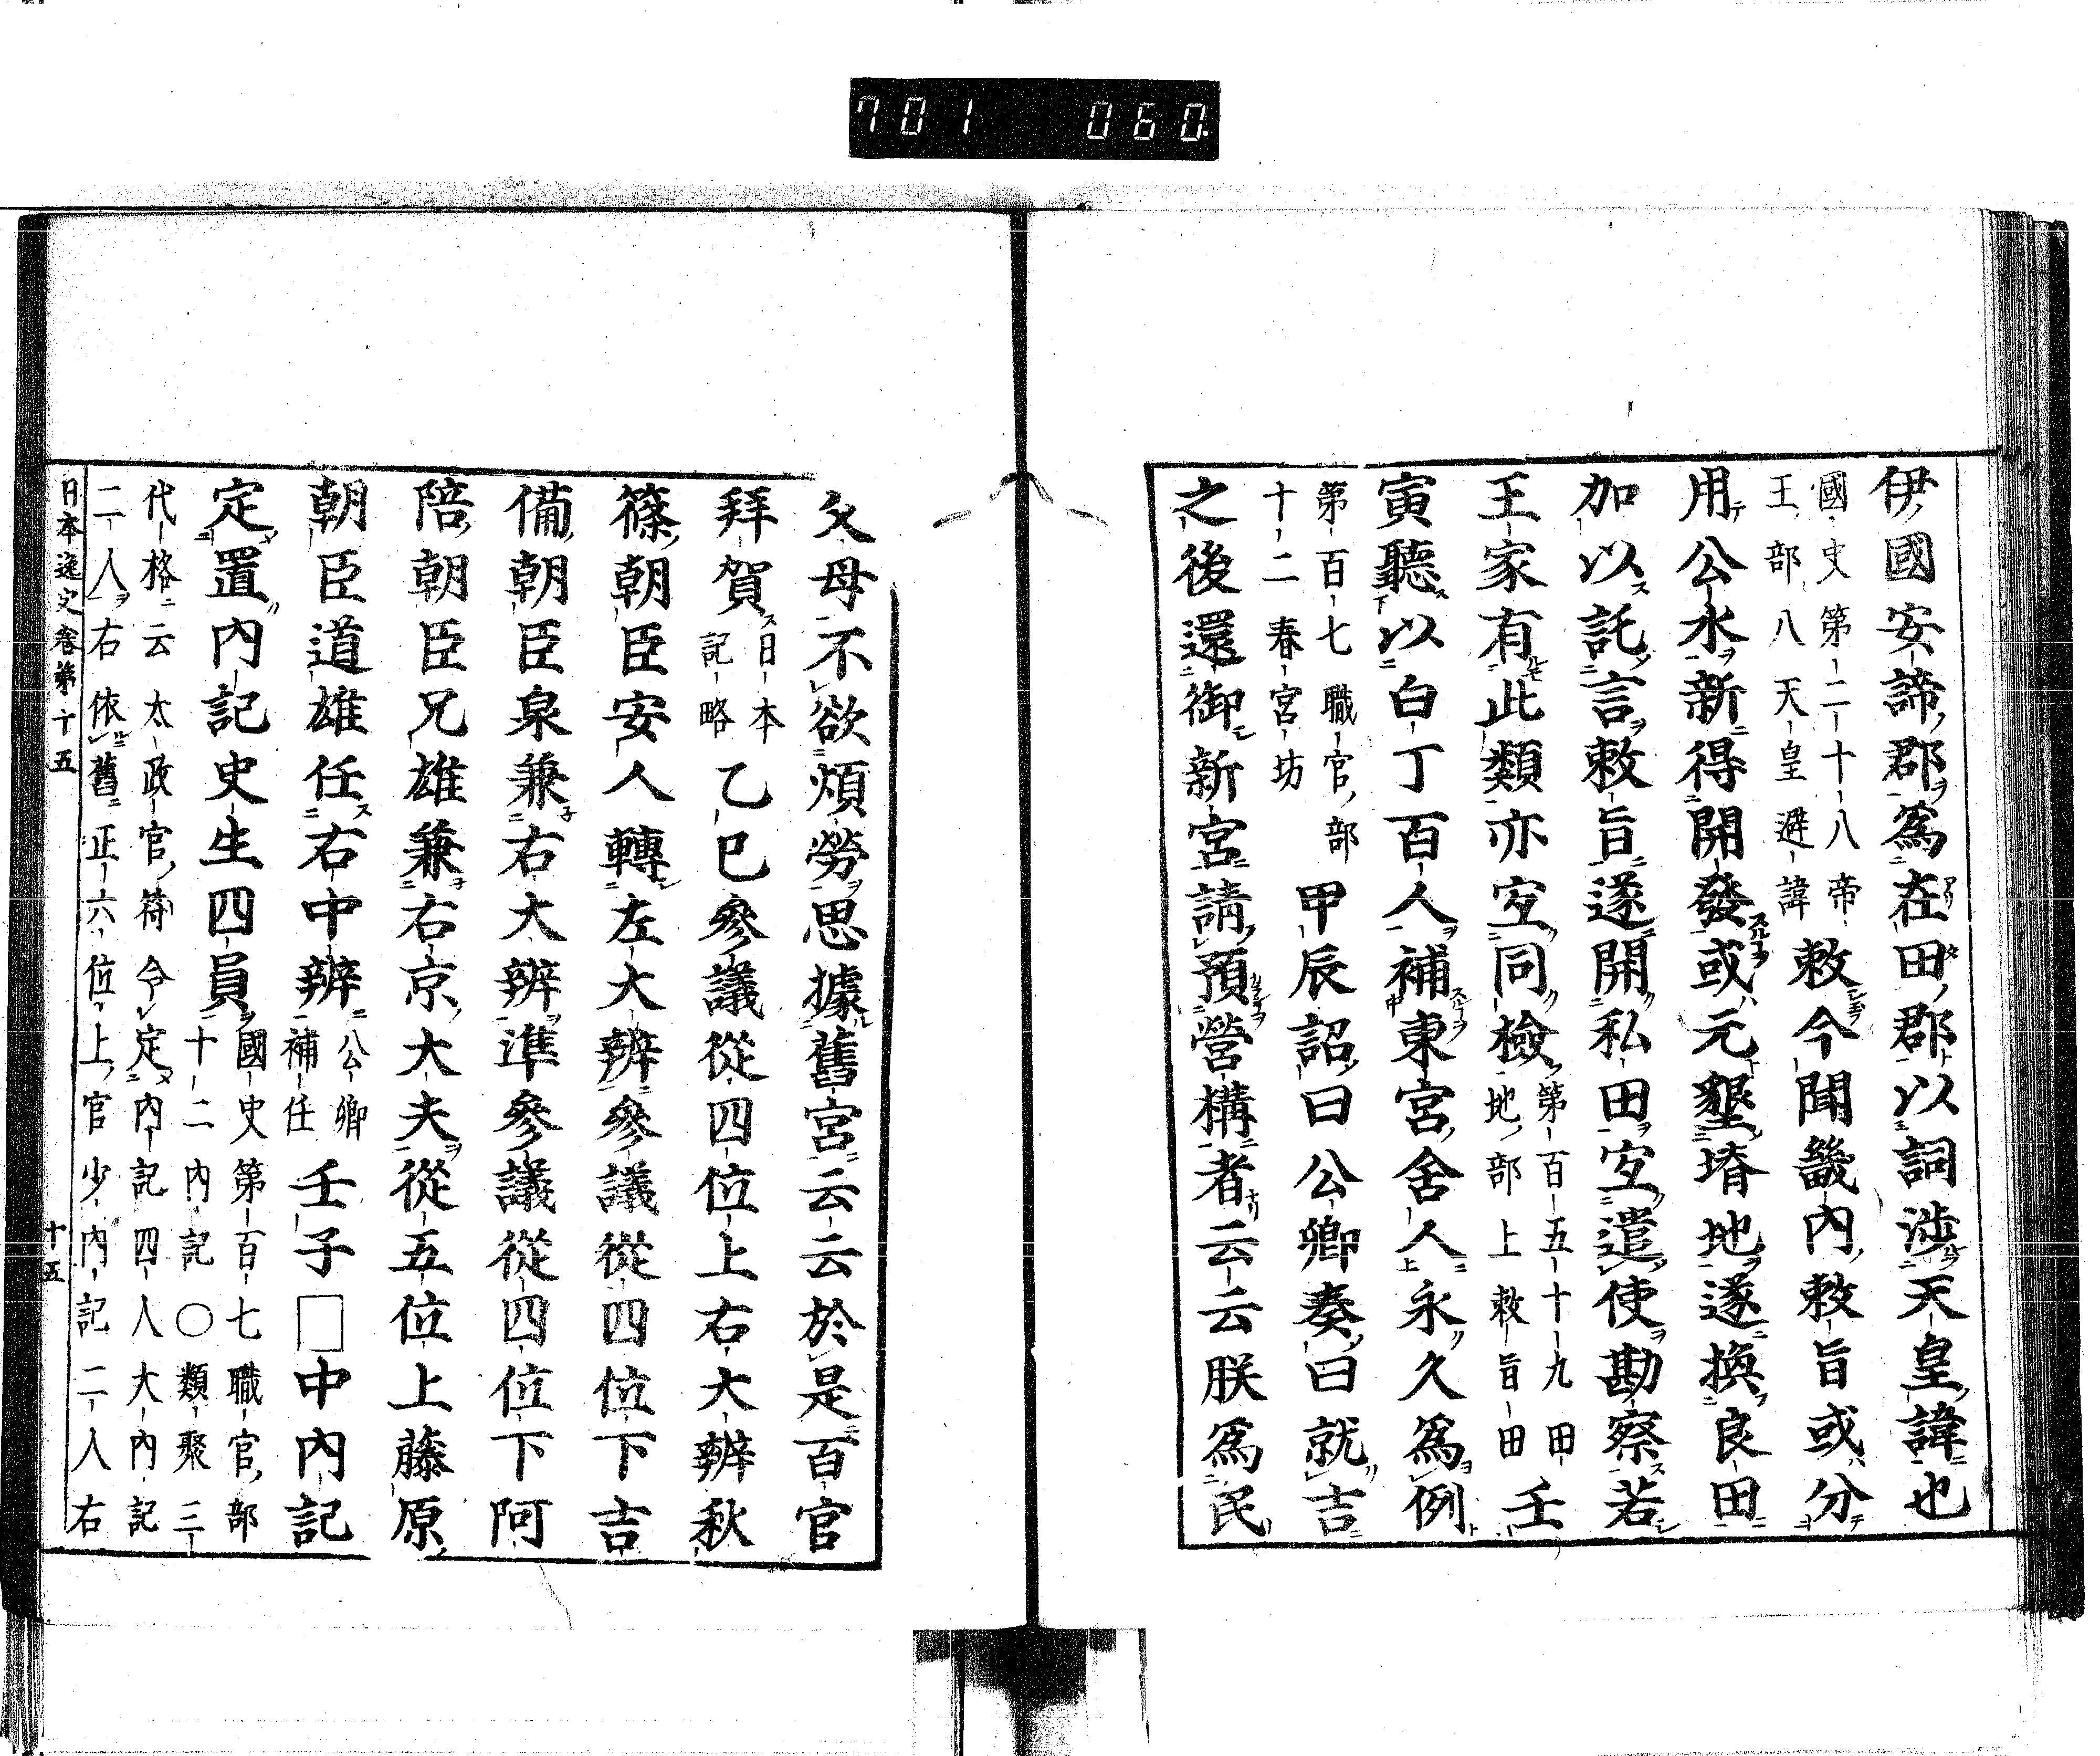 701 060
伊國安諦郡爲在田郡以詞渉天皇諱也
國史第二十八帝
王部八天皇避諱
敕今聞畿內敕旨或分
用公水新得開發或元墾堉地遂換良田
加以託言敕旨遂開私田宐遣使勘察若
王家有此類亦宐同檢
第百五十九田
地部上敕旨田
壬
寅聽以白丁百人補東宮舍人永久爲例
第百七職官部
十二春宮坊
甲辰詔曰公卿奏曰就吉
之後還御新宮請預營構者云云朕爲民
父母不欲煩勞思據舊宮云云於是百官
拜賀
日本
記略
乙巳參議從四位上右大辨秋
篠朝臣安人轉左大辨參議從四位下吉
備朝臣泉兼右大辨準參議從四位下阿
陪朝臣兄雄兼右京大夫從五位上藤原
朝臣道雄任右中辨
公卿
補任
壬子□中內記
定置內記史生四員
國史第百七職官部
十二內記〇類聚三
代格云太政官符令定內記四人大內記
二人右依舊正六位上官少內記二人右
日本逸史卷第十五
十五